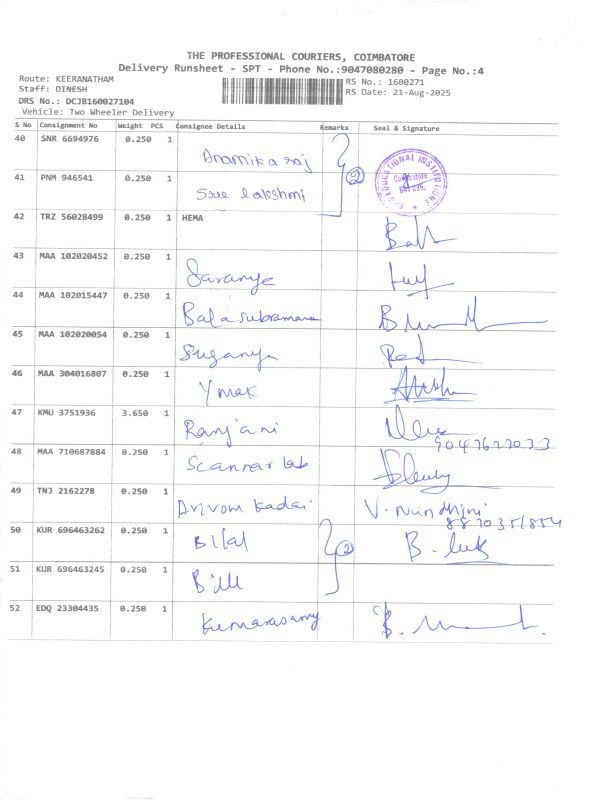 THE PROFESSIONAL COURIERS, COIMBATORE
Delivery Runsheet - SPT - Phone No.:9047080280 - Page No.:4
Route: KEERANATHAM RS No.: 1600271
Staff: DINESH RS Date: 21-Aug-2025
DRS No.: DCJB160027104
Vehicle: Two Wheeler Delivery
S No Consignment No Weight PCS Consignee Details Remarks Seal & Signature
40 SNR 6694976 0.250 1 Anamika raj
41 PNM 946541 0.250 1 Sree lakshmi 2
EDUCATIONAL INSTITUTIONS
Coimbatore
641 035.
42 TRZ 56028499 0.250 1 HEMA
43 MAA 102020452 0.250 1 Saranya
44 MAA 102015447 0.250 1 Balasubramani
45 MAA 102020054 0.250 1 Suganya
46 MAA 304016807 0.250 1 Ymak
47 KMU 3751936 3.650 1 Ranjani
48 MAA 710687884 0.250 1 Scannar lab
49 TNJ 2162278 0.250 1 Arivom kadai V. Nandhini
50 KUR 696463262 0.250 1 Bilal 2
51 KUR 696463245 0.250 1
52 EDQ 23304435 0.250 1 Kumarasamy